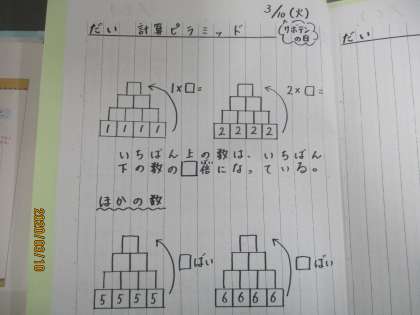 3/10(火)
サボテンの日
だい 計算ピラミッド
だい
1×□=
2×□=
1 1 1 1
2 2 2 2
いちばん上の数は、いちばん
下の数の□倍になっている。
ほかの数
□ばい
□ばい
5 5 5 5
6 6 6 6
2020/03/10